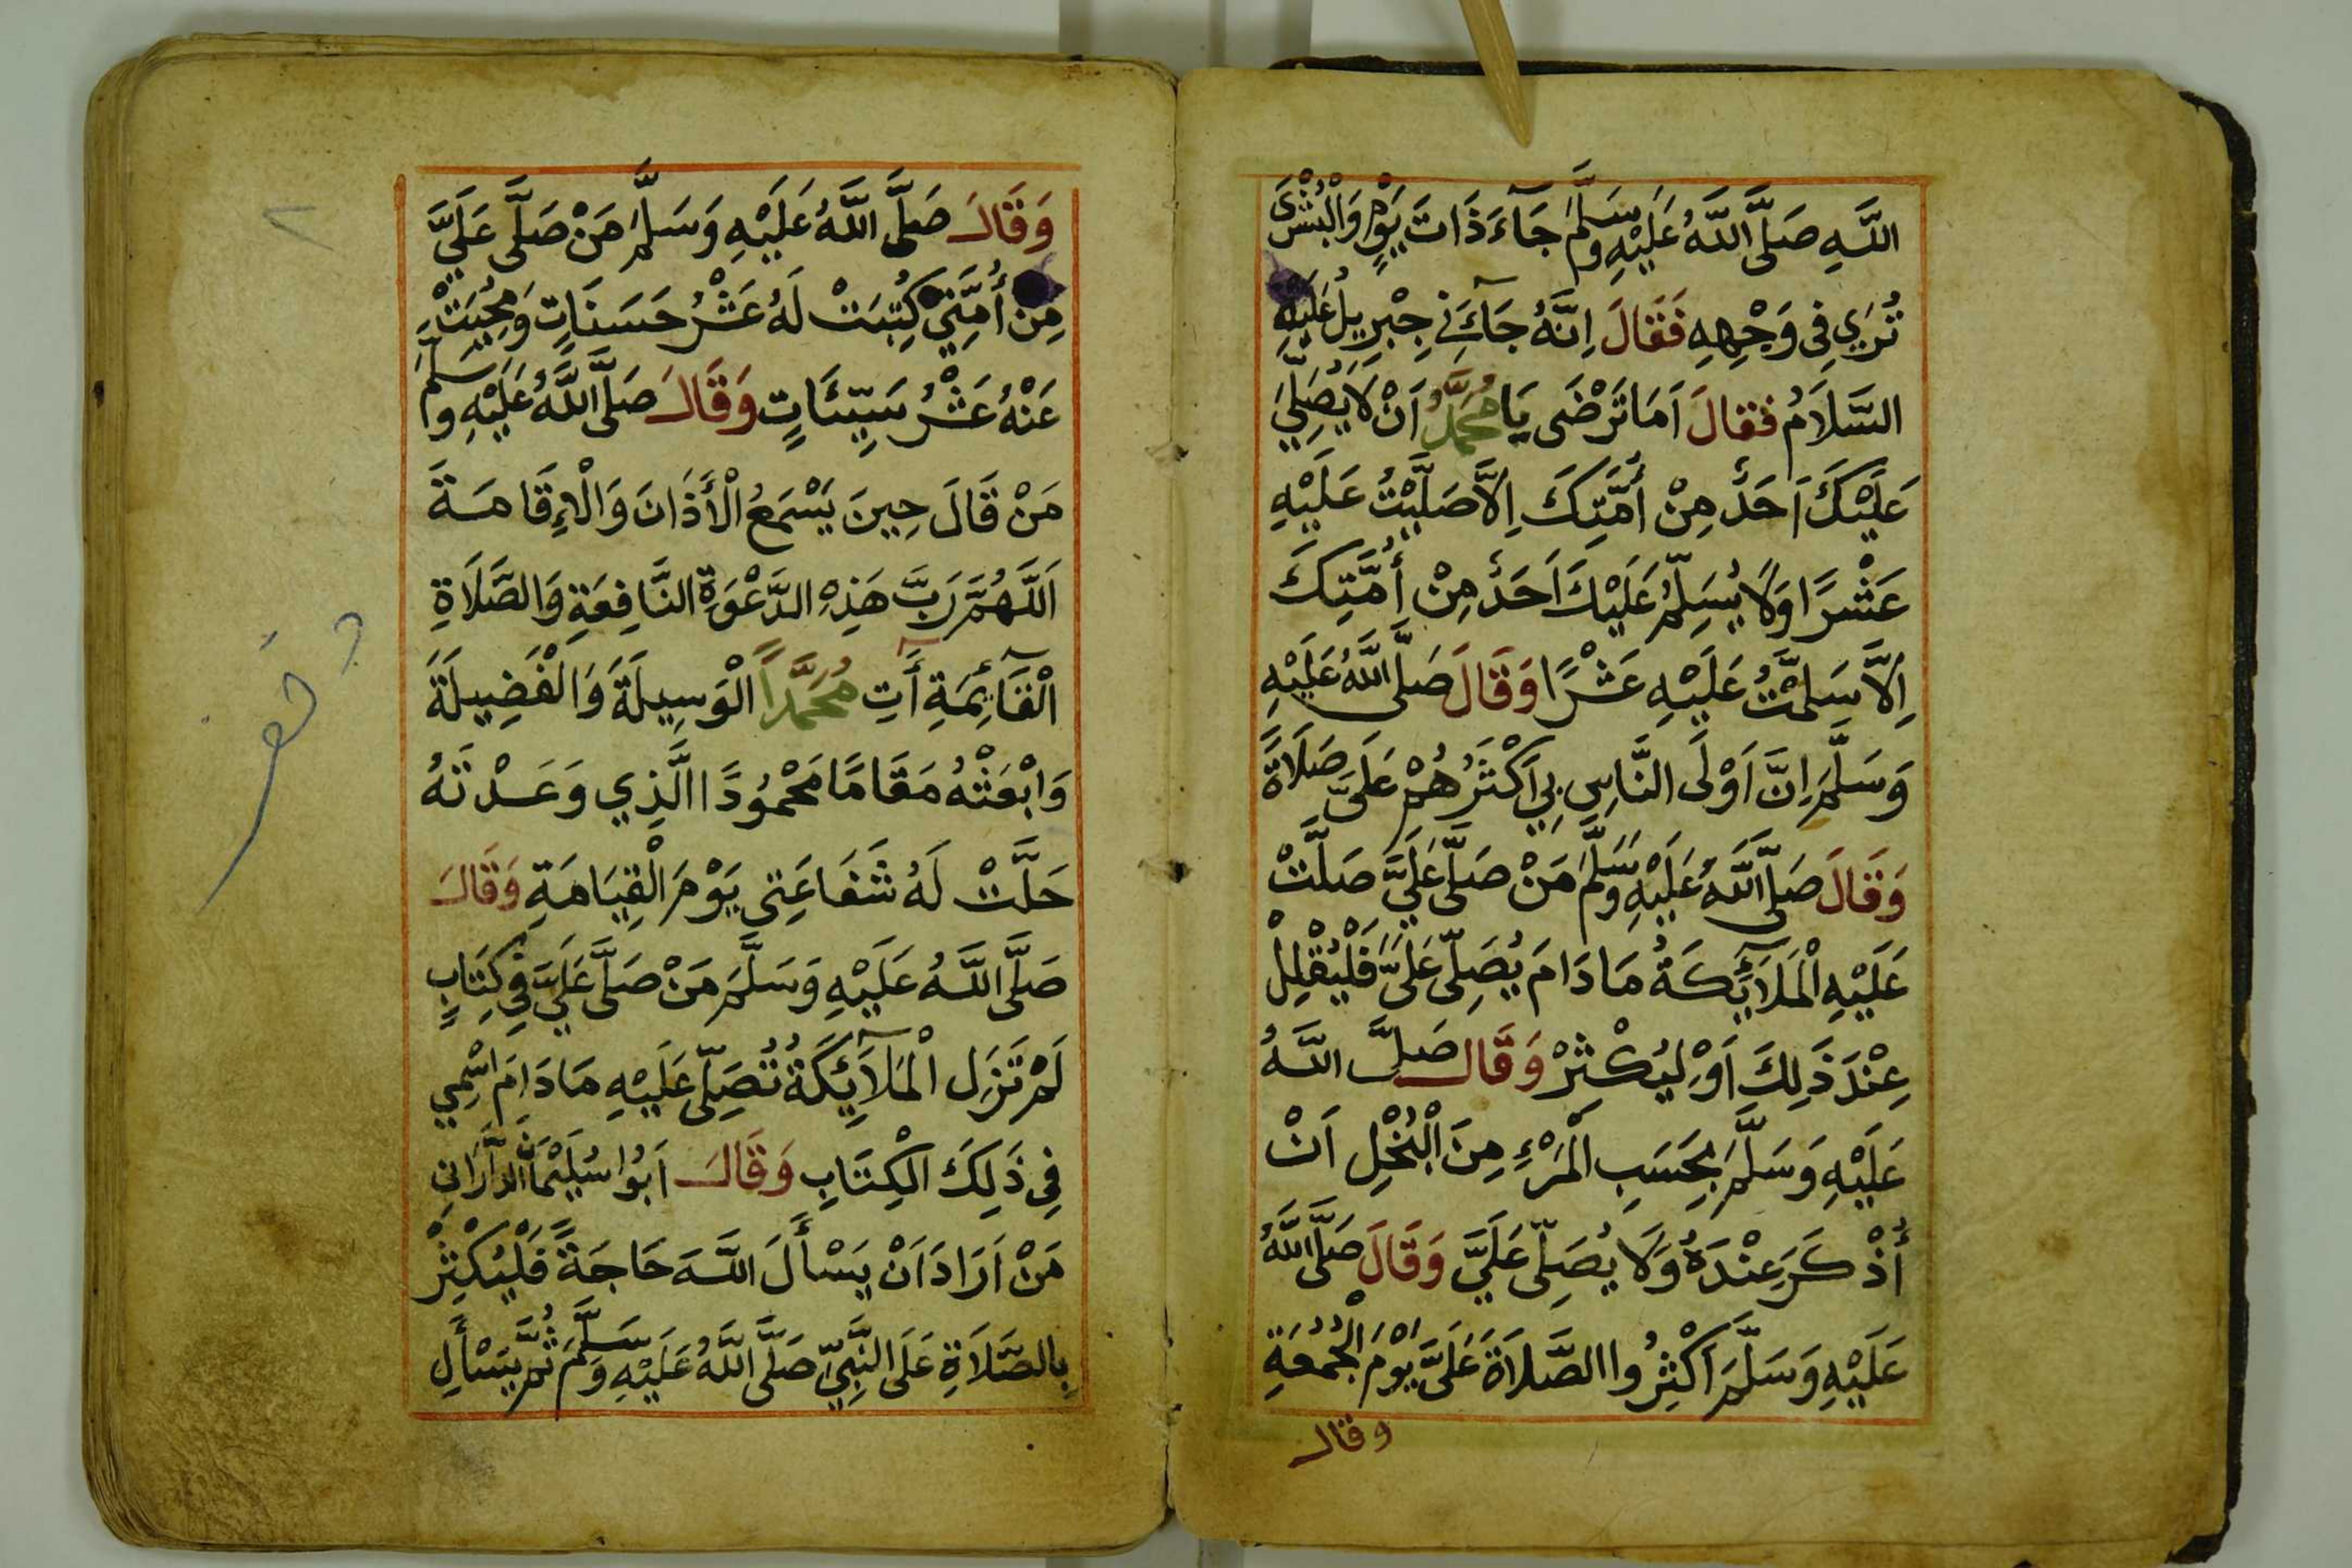 اللَّهِ صَلَّى اللَّهُ عَلَيْهِ وَسَلَّمَ جَآءَ ذَاتَ يَوْمٍ وَالْبُشْرَى
تُرَي فِي وَجْهِهِ فَقَالَ اِنَّهُ جَآءَنِي جِبْرِيلُ عَلَيْهِ
السَّلَامُ فَقالَ اَمَا تَرْضَى يَا مُحَمَّدُ اَنْ لَا يُصَلِّيَ
عَلَيْكَ اَحَدٌ مِنْ أُمَّتِكَ اِلَّا صَلَّيْتُ عَلَيْهِ
عَشْرًا وَلَا يُسَلِّمُ عَلَيْكَ اَحَدٌ مِنْ أُمَّتِكَ
اِلَّا سَلَّمْتُ عَلَيْهِ عَشْرًا وَقَالَ صَلَّى اللَّهُ عَلَيْهِ
وَسَلَّمَ اِنَّ اَوْلَى النَّاسِ بِي اَكْثَرُهُمْ عَلَيَّ صَلَاةً
وَقَالَ صَلَّى اللَّهُ عَلَيْهِ وَسَلَّمَ مَنْ صَلَّى عَلَيَّ صَلَّتْ
عَلَيْهِ الْمَلَآئِكَةُ مَا دَامَ يُصَلِّى عَلَيَّ فَلْيُقْلِلْ
عِنْدَ ذَلِكَ اَوْ لِيُكْثِرْ وَقَالَ صَلَّى اللَّهُ
عَلَيْهِ وَسَلَّمَ بِحَسَبِ الْمَرْءِ مِنَ الْبُخْلِ اَنْ
أُذْكَرَ عِنْدَهُ وَلَا يُصَلِّى عَلَيَّ وَقَالَ صَلَّى اللَّهُ
عَلَيْهِ وَسَلَّمَ اَكْثِرُوا الصَّلَاةَ عَلَيَّ يَوْمَ الْجُمُعَةِ
وقال
وَقَالَ صَلَّى اللَّهُ عَلَيْهِ وَسَلَّمَ مَنْ صَلَّى عَلَيَّ
مِنْ أُمَّتِي كُتِبَتْ لَهُ عَشْرُ حَسَنَاتٍ وَمُحِيَتْ
عَنْهُ عَشْرُ سَيِّئَاتٍ وَقَالَ صَلَّى اللَّهُ عَلَيْهِ وَسَلَّمَ
مَنْ قَالَ حِينَ يَسْمَعُ الْأَذَانَ وَالْاِقَامَةَ
اَللَّهُمَّ رَبَّ هَذِهِ الدَّعْوَةِ النَّافِعَةِ وَالصَّلَاةِ
الْقَآئِمَةِ أَتِ مُحَمَّداً الْوَسِيلَةَ وَالْفَضِيلَةَ
وَابْعَثْهُ مَقَامًا مَحْمُودًا الَّذِي وَعَدْتَهُ
حَلَّتْ لَهُ شَفَاعَتِي يَوْمَ الْقِيَامَةِ وَقَالَ
صَلَّى اللَّهُ عَلَيْهِ وَسَلَّمَ مَنْ صَلَّى عَلَيَّ فِي كِتَابٍ
لَمْ تَزَلِ الْمَلَآئِكَةُ تُصَلِّى عَلَيْهِ مَا دَامَ اسْمِي
فِي ذَلِكَ الْكِتَابِ وَقَالَ اَبُوا سُلَيْمَانَ الدَّارَانِي
مَنْ اَرَادَ اَنْ يَسْأَلَ اللَّهَ حَاجَةً فَلْيُكْثِرْ
بِالصَّلَاةِ عَلَى النَّبِيِّ صَلَّى اللَّهُ عَلَيْهِ وَسَلَّمَ ثُمَّ يَسْأَلِ